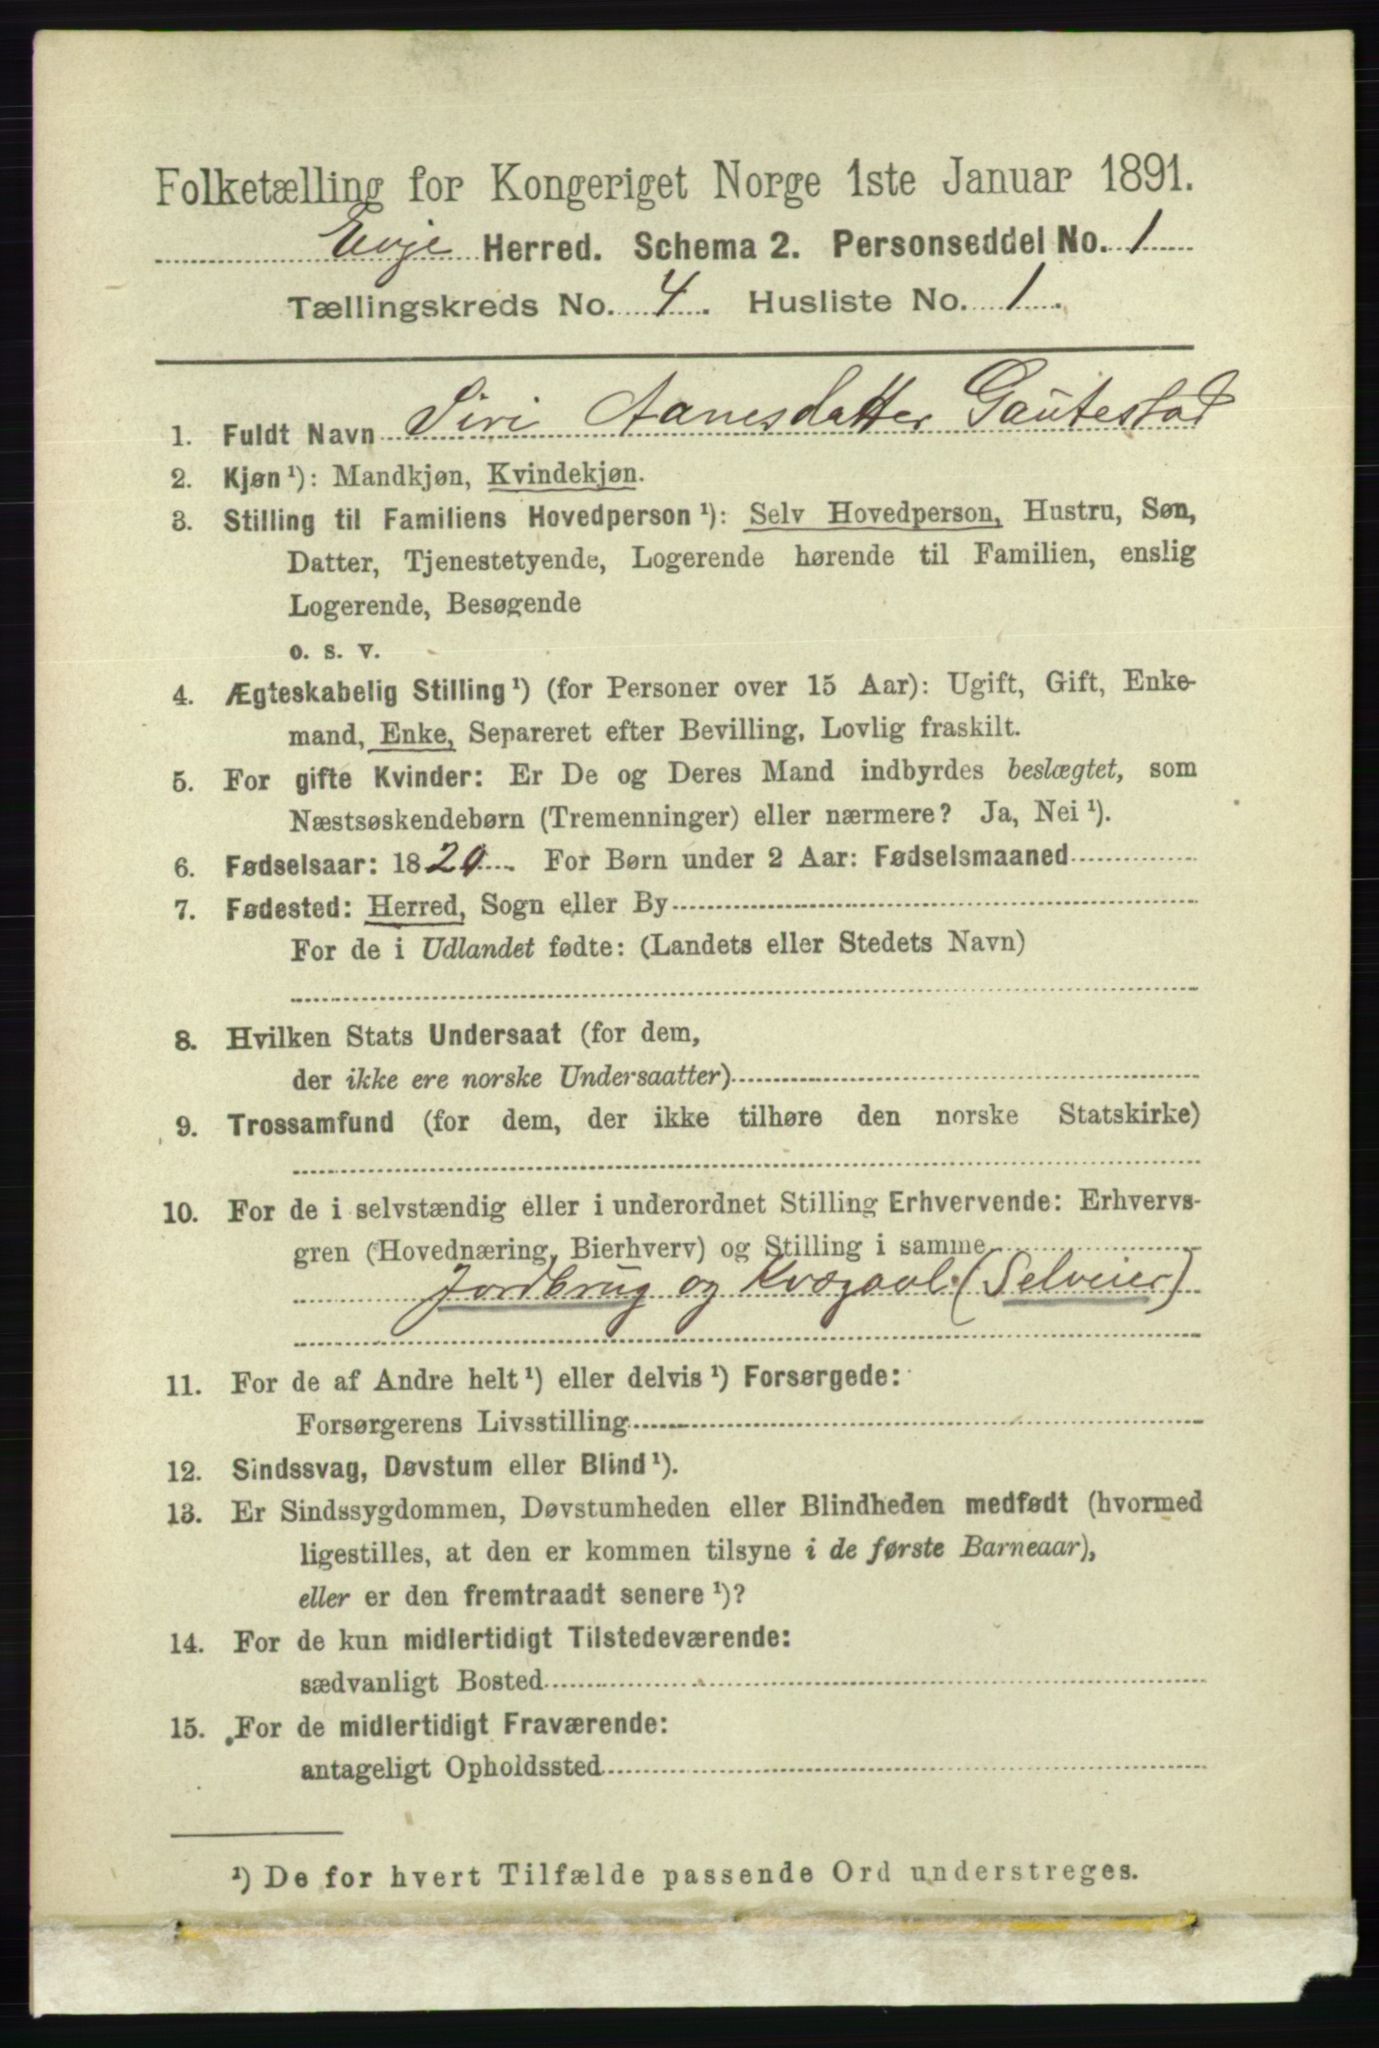 Folketælling for Kongeriget Norge 1ste Januar 1891.
Evje Herred. Schema 2. Personseddel No. 1
Tællingskreds No. 4. Husliste No. 1.
1. Fuldt Navn Siri Aanesdatter Gautestad
2. Kjøn¹): Mandkjøn, Kvindekjøn.
3. Stilling til Familiens Hovedperson¹): Selv Hovedperson, Hustru, Søn,
Datter, Tjenestetyende, Logerende hørende til Familien, enslig
Logerende, Besøgende
o. s. v.
4. Ægteskabelig Stilling¹) (for Personer over 15 Aar): Ugift, Gift, Enke-
mand, Enke, Separeret efter Bevilling, Lovlig fraskilt.
5. For gifte Kvinder: Er De og Deres Mand indbyrdes beslægtet, som
Næstsøskendebørn (Tremenninger) eller nærmere? Ja, Nei¹).
6. Fødselsaar: 1820. For Børn under 2 Aar: Fødselsmaaned
7. Fødested: Herred, Sogn eller By
For de i Udlandet fødte: (Landets eller Stedets Navn)
8. Hvilken Stats Undersaat (for dem,
der ikke ere norske Undersaatter)
9. Trossamfund (for dem, der ikke tilhøre den norske Statskirke)
10. For de i selvstændig eller i underordnet Stilling Erhvervende: Erhvervs-
gren (Hovednæring, Bierhverv) og Stilling i samme
Jordbrug og Kvægavl. (Selveier)
11. For de af Andre helt¹) eller delvis¹) Forsørgede:
Forsørgerens Livsstilling
12. Sindssvag, Døvstum eller Blind¹).
13. Er Sindssygdommen, Døvstumheden eller Blindheden medfødt (hvormed
ligestilles, at den er kommen tilsyne i de første Barneaar),
eller er den fremtraadt senere¹)?
14. For de kun midlertidigt Tilstedeværende:
sædvanligt Bosted
15. For de midlertidigt Fraværende:
antageligt Opholdssted
¹) De for hvert Tilfælde passende Ord understreges.